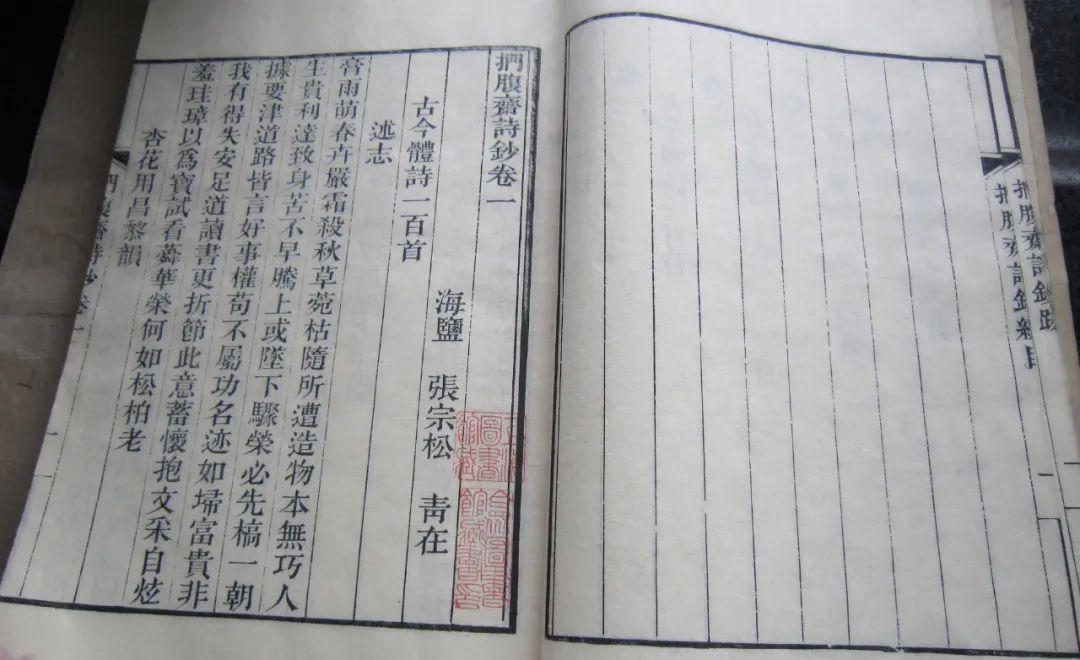 捫腹齋詩鈔跋
捫腹齋詩鈔總目
捫腹齋詩鈔卷一
海鹽 張宗松 青在
古今體詩一百首
述志
膏雨萌春卉嚴霜殺秋草菀枯隨所遭造物本無巧人
生貴利達致身苦不早騰上或墜下驟榮必先槁一朝
據要津道路皆言好事權苟不屬功名迹如埽富貴非
我有得失安足道讀書更折節此意蓄懷抱文采自炫
羞珪璋以爲寶試看蕣華榮何如松柏老
杏花用昌黎韻
捫腹齋詩鈔卷一